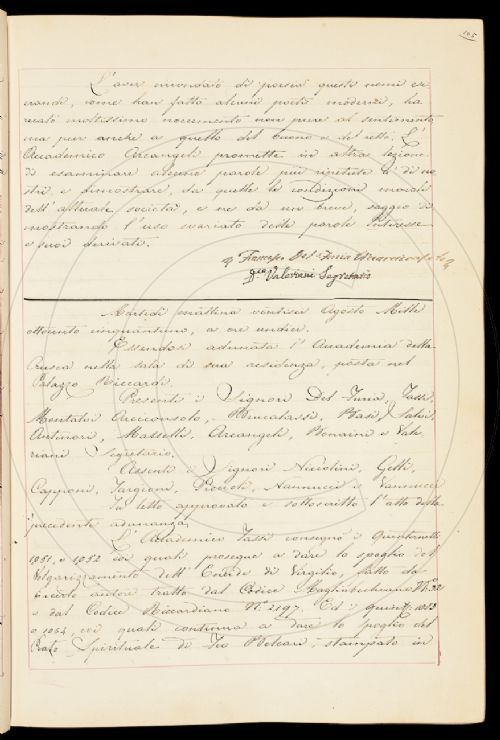 105
L'aver inondato di poesia questi nomi ese
crandi, come han fatto alcuni poeti moderni, ha
recato moltissimo nocumento non pure al sentimento
ma pur anche a quello del buono e del retto. L'
Accademico Arcangeli promette in altra lezione
di esaminare alcune parole più ripetute a' dì no
stri e dimostrare, da quelle la condizione morale
dell' attuale società, e ne dà un breve saggio di
mostrando l'uso svariato delle parole Interesse
e suoi derivati.
Francesco Del Furia
Dco Valeriani Segretario
Martedì mattina ventisei Agosto Mille
ottocento cinquantuno, a ore undici.
Essendosi adunata l'Accademia della
Crusca nella sala di sua residenza, posta nel
Palazzo Riccardi.
Presenti i Signori Del Furia, Tassi,
Montalvi Arciconsolo, Bencalassi, Basi,
Antinori, Masselli, Arcangeli, Bonaini e Vale
riani Segretario.
Assenti i Signori Niccolini, Gelli,
Capponi, Targioni, Piccioli, Nannucci e Vannucci
Fu letto approvato e sottoscritto l'atto della
precedente adunanza.
L'Accademico Tassi consegnò i Quinternelli
1051, e 1052 coi quali prosegue a dare lo spoglio del
Volgarizzamento dell' Eneide di Virgilio, fatto da
autore tratto dal Codice Magliabechiano N.° 32
e dal Codice Riccardiano N.° 2197. Ed i quint. 1053
e 1054, coi quali continua a dare lo spoglio del
Prato Spirituale di Feo Belcari, stampato in